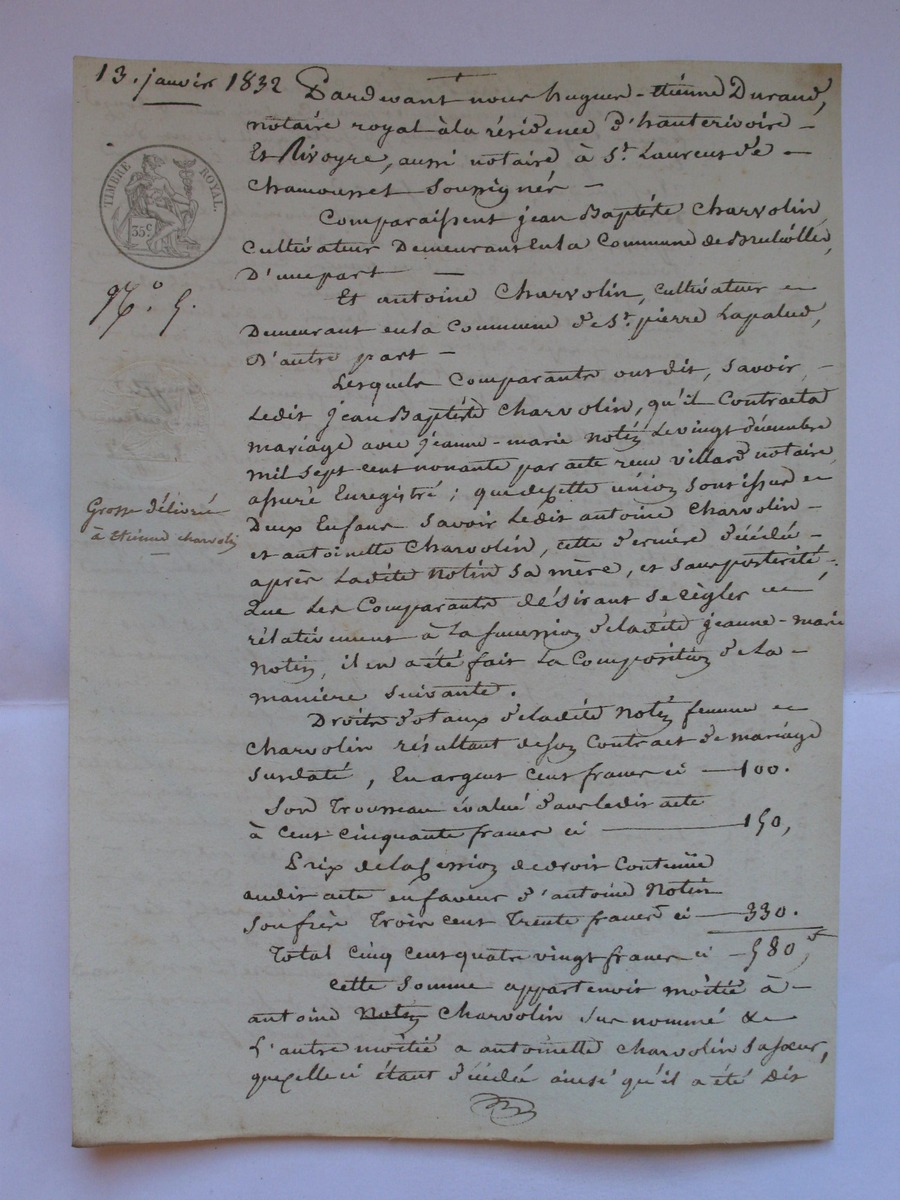 13. janvier 1832 Pardevant nous hugues-étienne Durand,
notaire royal à la résidence d'hauterivoire -
Et Rivoyre, aussi notaire à St. Laurent de -
Chamousset soussignés -
TIMBRE ROYAL.
35 c
Comparaissent jean Baptiste Charvolin,
Cultivateur Demeurant en la Commune de Brulliolles,
D'une part -
N.o 5.
Et antoine Charvolin, cultivateur
Demeurant en la Commune de St. pierre Lapalud,
d'autre part -
Lesquels Comparants ont dit, savoir, -
Ledit jean Baptiste Charvolin, qu'il Contracta
mariage avec jeanne-marie notin le vingt décembre
mil sept cent nonante par acte reçu villard notaire
assuré Enregistré ; que de cette union sont issus
Deux Enfans savoir Ledit antoine Charvolin -
et antoinette Charvolin, cette dernière décédée -
après Ladite notin sa mère, et sans postérité.
Que Les Comparants désirant se règler
rélativement à la succession de ladite jeanne-marie
notin, il en a été fait la Composition de la -
manière suivante.
Grosse délivrée
à Etienne charvolin
Droits dotaux de ladite notin femme
Charvolin résultant de son Contract de mariage
susdaté, En argent cent francs ci - 100.
Son Trousseau évalué dans ledit acte
à cent cinquante francs ci - 150,
Prix de la Cession de droit Contenüe
audit acte en faveur d'antoine notin
son frère Trois cent Trente francs ci - 330.
Total cinq cent quatre vingt francs ci - 580 f
Cette somme appartenoit moitié à -
antoine notin Charvolin sus nommé &
L'autre moitié a antoinette charvolin sa sœur,
que celle ci étant décédée ainsi qu'il a été dit